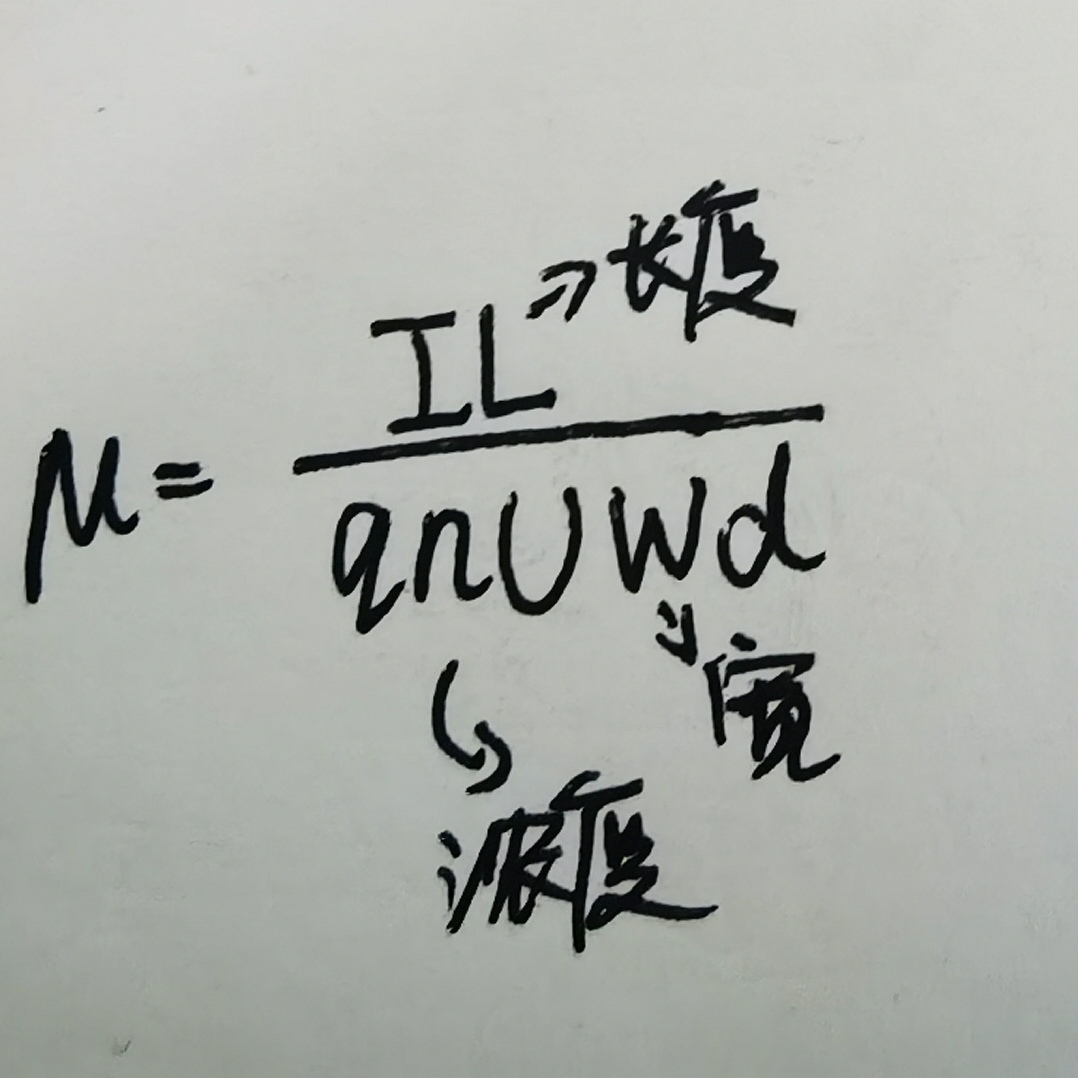 μ = IL / qnUWd
长度
宽
浓度